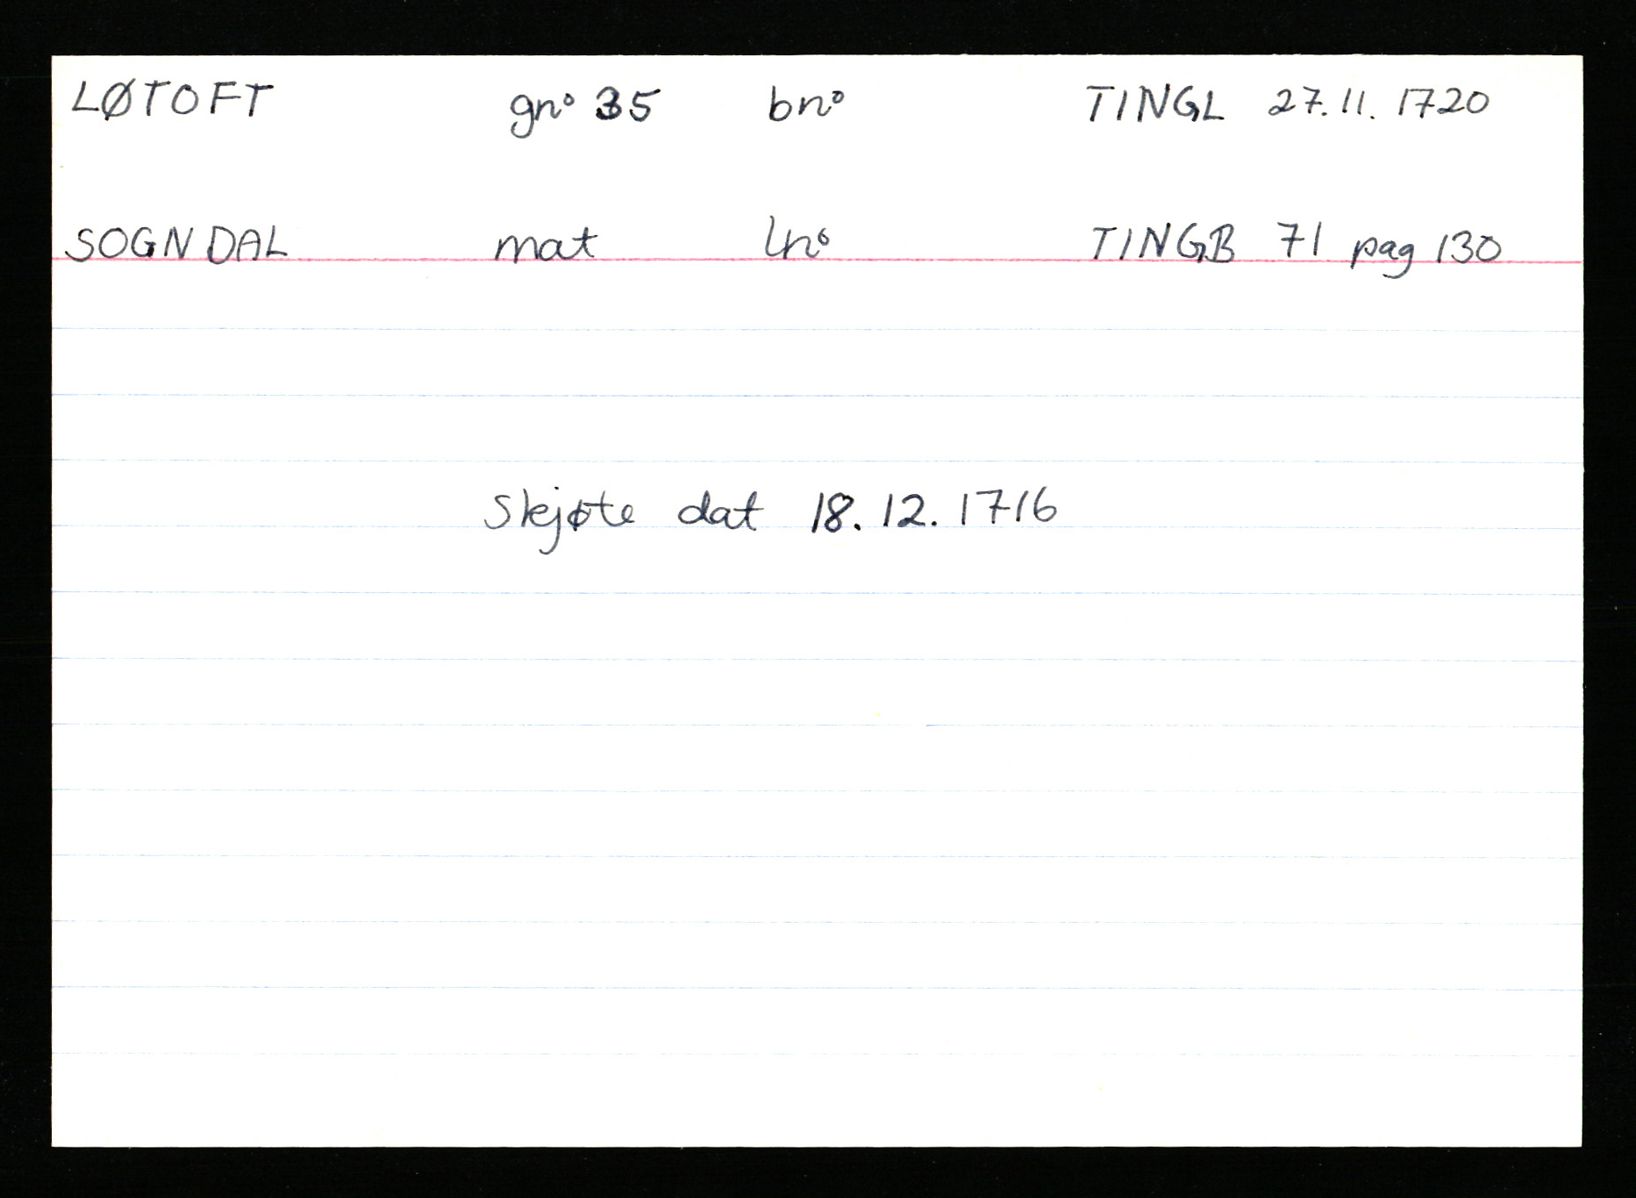 LØTOFT gnº 35 bnº TINGL 27.11.1720
SOGNDAL mat lnº TINGB 71 pag 130
Skjøte dat 18.12.1716